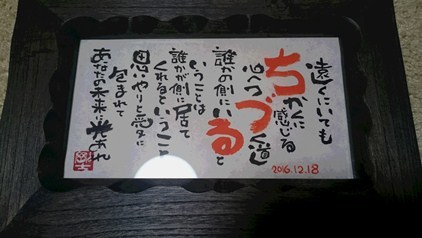 遠くにいても
ちかくに感じる
心つづく道
誰かの側にいると
いうことは
誰かが側に居て
くれるということ
思いやりと愛々に
包まれて
あなたの未来に光あれ
2016.12.18